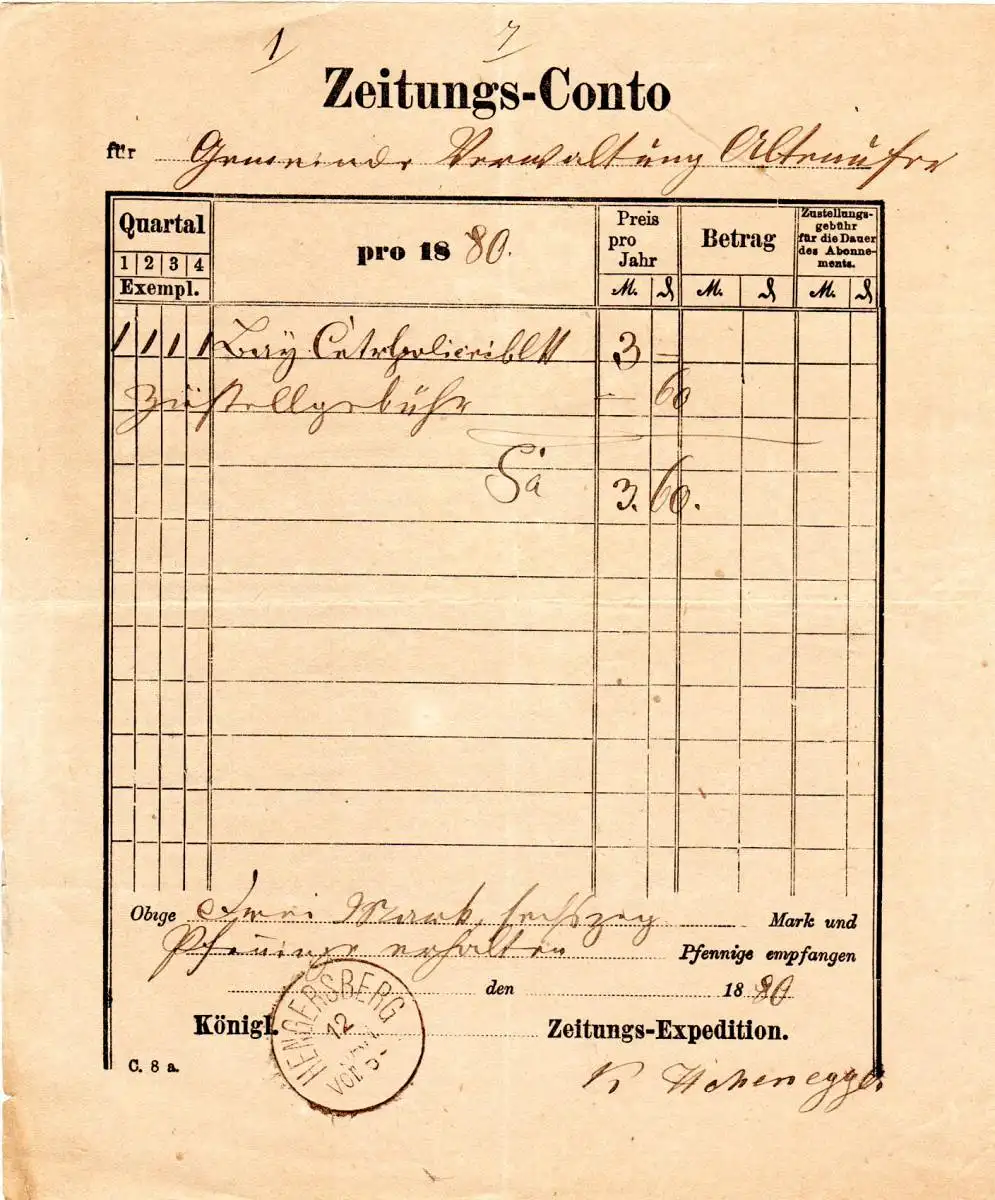 1 7
Zeitungs-Conto
für Gemeinde Verwaltung Altenufer
Quartal
1 2 3 4
Exempl.
pro 1880.
Preis pro Jahr
Betrag
Zustellungs-gebühr für die Dauer des Abonne-ments.
M. ₰ M. ₰ M. ₰
1 1 1 1 Bay 3 —
Zustellgebühr — 60
Sa 3. 60.
Obige Drei Mark sechszig Mark und
Pfennige erhalten Pfennige empfangen
den 1880
Königl. Zeitungs-Expedition.
HENGERSBERG
12
VOR
C. 8 a.